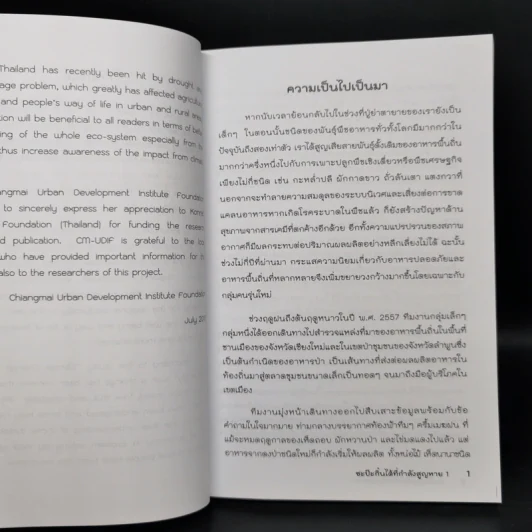 Thailand has recently been hit by drought
age problem, which greatly has affected agricul
and people's way of life in urban and rural areas
tion will be beneficial to all readers in terms of
ing of the whole eco-system especially from
thus increase awareness of the impact from
angmai Urban Development Institute Foundation
to sincerely express her appreciation to
Foundation (Thailand) for funding the
d publication. CM-UDIF is grateful to the
who have provided important information for
also to the researchers of this project.
Chiangmai Urban Development Institute Foundation
July
ความเป็นไปเป็นมา
หากนับเวลาย้อนกลับไปในช่วงที่ปู่ย่าตายายของเรายังเป็น
เด็กๆ ในตอนนั้นชนิดของพันธุ์พืชอาหารทั่วทั้งโลกมีมากกว่าใน
ปัจจุบันถึงสองเท่าตัว เราได้สูญเสียสายพันธุ์ดั้งเดิมของอาหารพื้นถิ่น
มากกว่าครึ่งหนึ่งไปกับการเพาะปลูกพืชเชิงเดี่ยวหรือพืชเศรษฐกิจ
เพียงไม่กี่ชนิด เช่น กะหล่ำปลี ผักกาดขาว ถั่วลันเตา แตงกวาที่
นอกจากจะทำลายความสมดุลของระบบนิเวศและเสี่ยงต่อการขาด
แคลนอาหารหากเกิดโรคระบาดในพืชแล้ว ก็ยังสร้างปัญหาด้าน
สุขภาพจากสารเคมีที่ตกค้างอีกด้วย อีกทั้งความแปรปรวนของสภาพ
อากาศก็มีผลกระทบต่อปริมาณผลผลิตอย่างหลีกเลี่ยงไม่ได้ ฉะนั้น
ช่วงไม่กี่ปีที่ผ่านมา กระแสความนิยมเกี่ยวกับอาหารปลอดภัยและ
อาหารพื้นถิ่นที่หลากหลายจึงเพิ่มขยายวงกว้างมากขึ้นโดยเฉพาะกับ
กลุ่มคนรุ่นใหม่
ช่วงฤดูฝนถึงต้นฤดูหนาวในปี พ.ศ. 2557 ทีมงานกลุ่มเล็กๆ
กลุ่มหนึ่งได้ออกเดินทางไปสำรวจแหล่งที่มาของอาหารพื้นถิ่นในพื้นที่
ชานเมืองของจังหวัดเชียงใหม่และในเขตป่าชุมชนของจังหวัดลำพูนซึ่ง
เป็นต้นกำเนิดของอาหารป่า เป็นเส้นทางที่ส่งต่อผลผลิตอาหารใน
ท้องถิ่นมาสู่ตลาดชุมชนขนาดเล็กเป็นทอดๆ จนมาถึงมือผู้บริโภคใน
เขตเมือง
ทีมงานมุ่งหน้าเดินทางออกไปสืบเสาะข้อมูลพร้อมกับข้อ
คำถามในใจมากมาย ท่ามกลางบรรยากาศท้องฟ้าทึมๆ ครึ้มเมฆฝน ที่
แม้จะหมดฤดูกาลของเห็ดถอบ ผักหวานป่า และไข่มดแดงไปแล้ว แต่
อาหารจากดงป่าชนิดใหม่ก็กำลังเริ่มให้ผลผลิต ทั้งหน่อไม้ เห็ดนานาชนิด
ชะป๊ะกิ๋นได้ที่กำลังสูญหาย 1 1